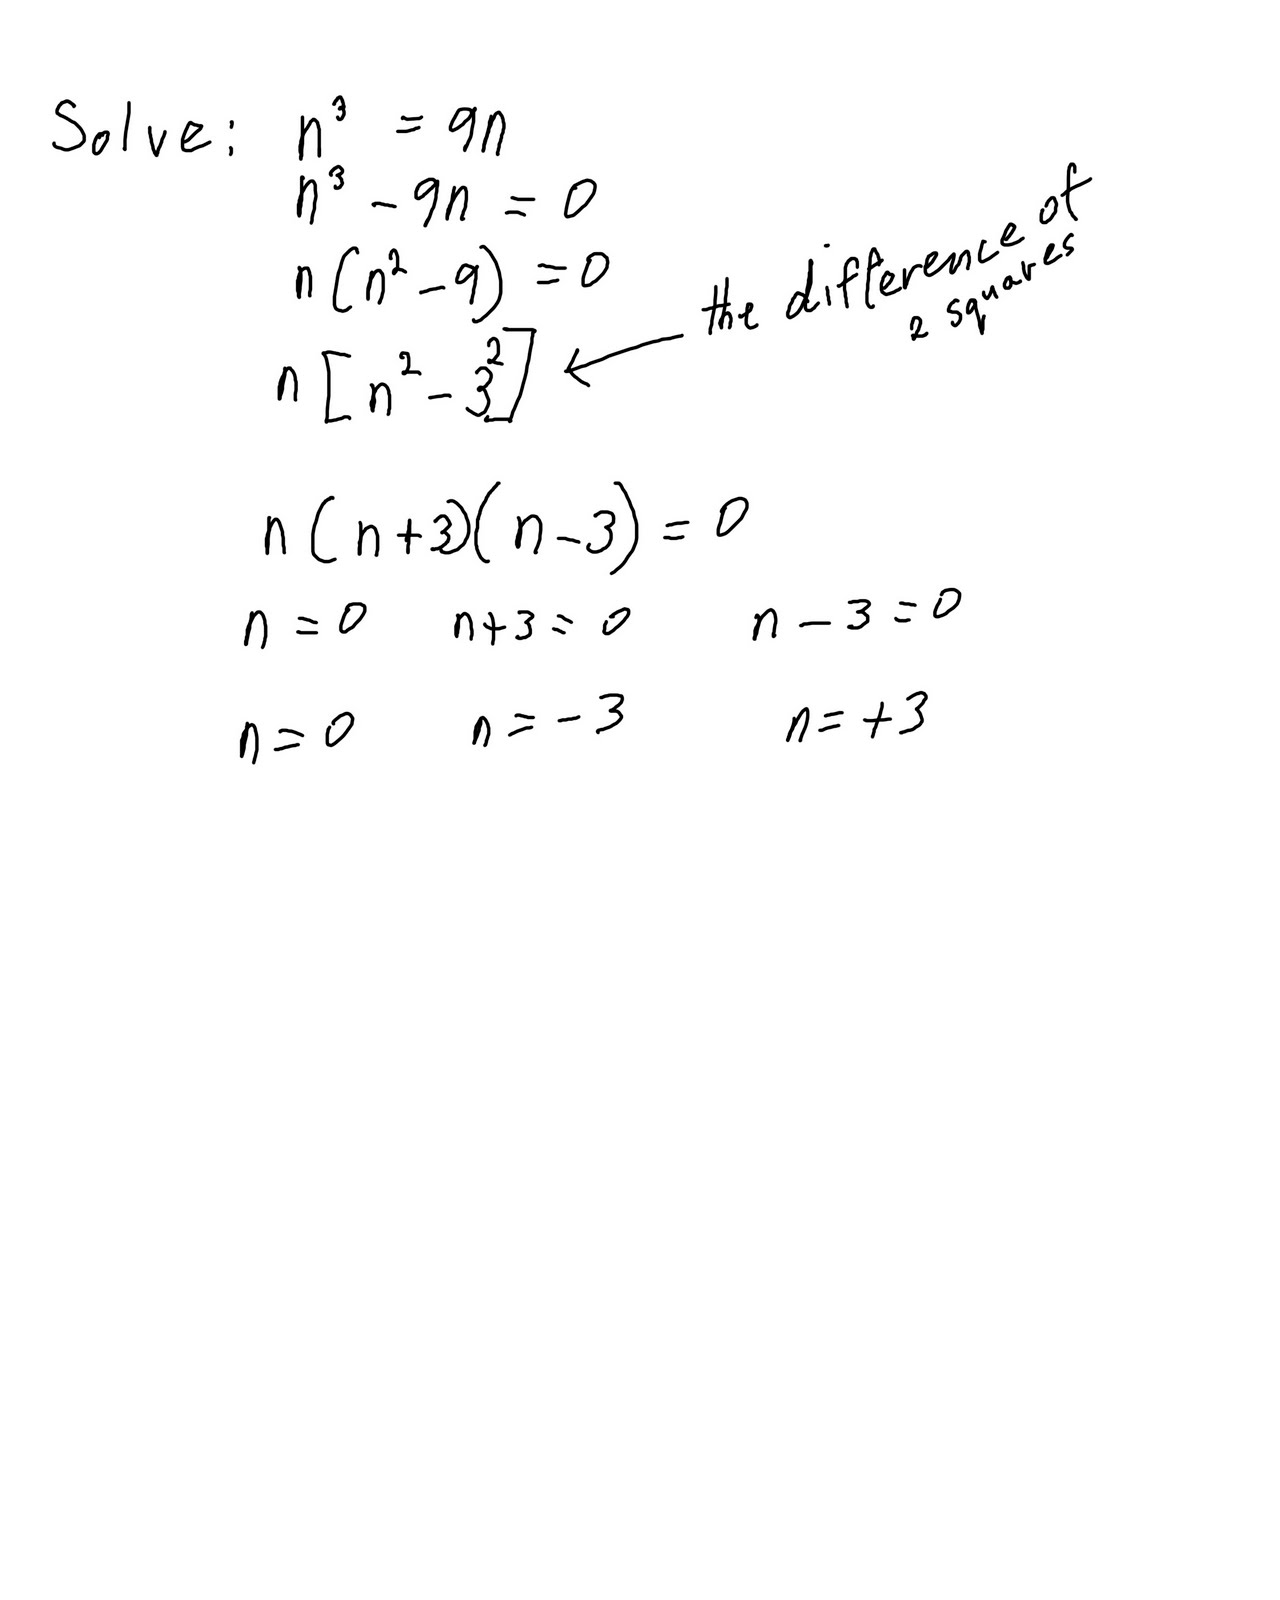 Solve: n³ = 9n
n³ - 9n = 0
n(n² - 9) = 0
n[n² - 3²] ← the difference of
2 squares
n(n+3)(n-3) = 0
n = 0 n+3 = 0 n - 3 = 0
n = 0 n = -3 n = +3